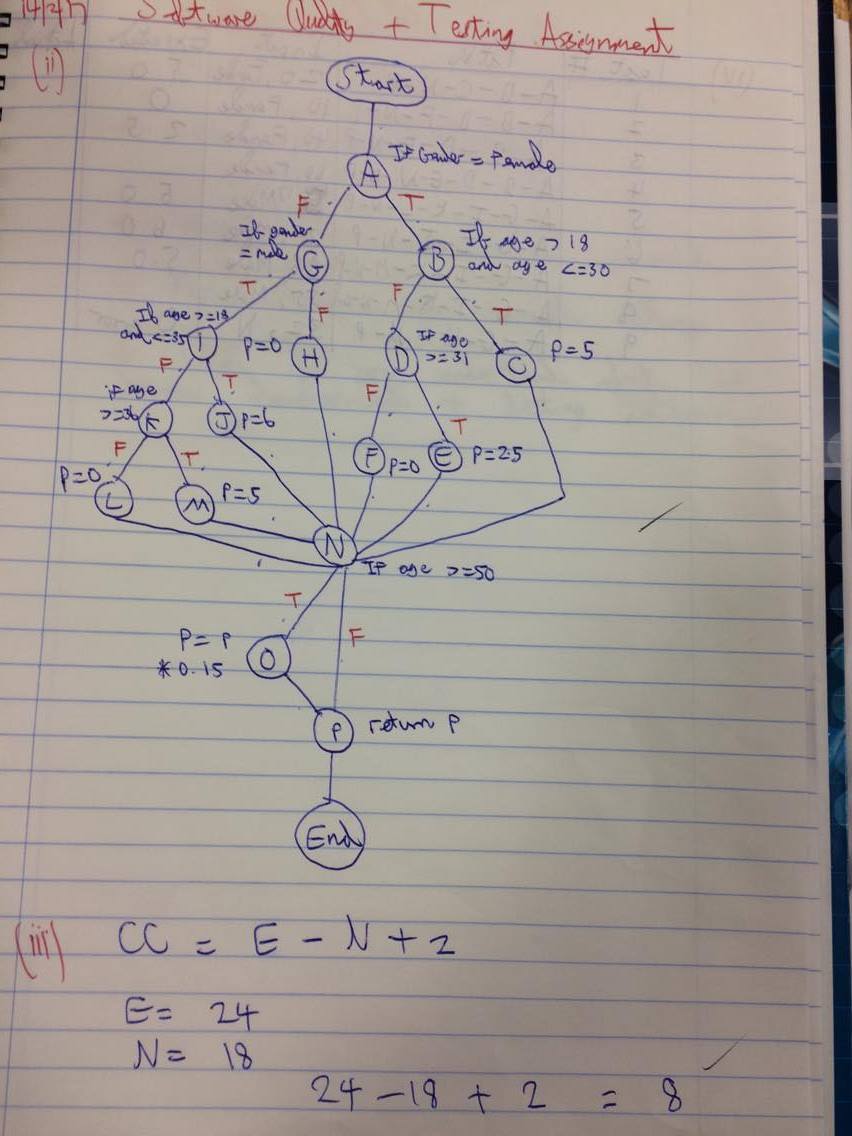 14/2/17 Software Quality + Testing Assignment
(ii)
Start
If Gender = Female
A
F T
If gender
= male
G
B
If age > 18
and age <=30
T F F T
If age >=18
and <=35
I
P=0 H
D
If age
>= 31
C P=5
F T F T
if age
>=36
K
J P=6
F P=0
E P=25
F T
P=0
L
M P=5
N
If age >=50
T F
P= P
* 0.15
O
P return P
End
(iii) CC = E - N + 2
E= 24
N= 18
24 - 18 + 2 = 8